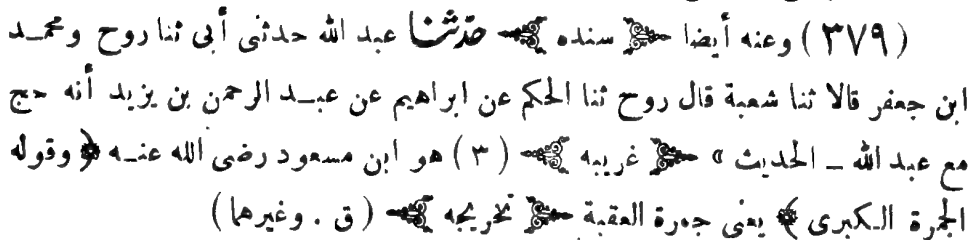 ( ٣٧٩ ) وعنه أيضا ﴿ سنده ﴾ حدثنا عبد الله حدثنى أبى ثنا روح ومحمد
ابن جعفر قالا ثنا شعبة قال روح ثنا الحكم عن ابراهيم عن عبد الرحمن بن يزيد أنه حج
مع عبد الله ـ الحديث » ﴿ غريبه ﴾ ( ٣ ) هو ابن مسعود رضى الله عنه ﴿ وقوله
الجمرة الكبرى ﴾ يعنى جمرة العقبة ﴿ تخريجه ﴾ ( ق . وغيرهما )